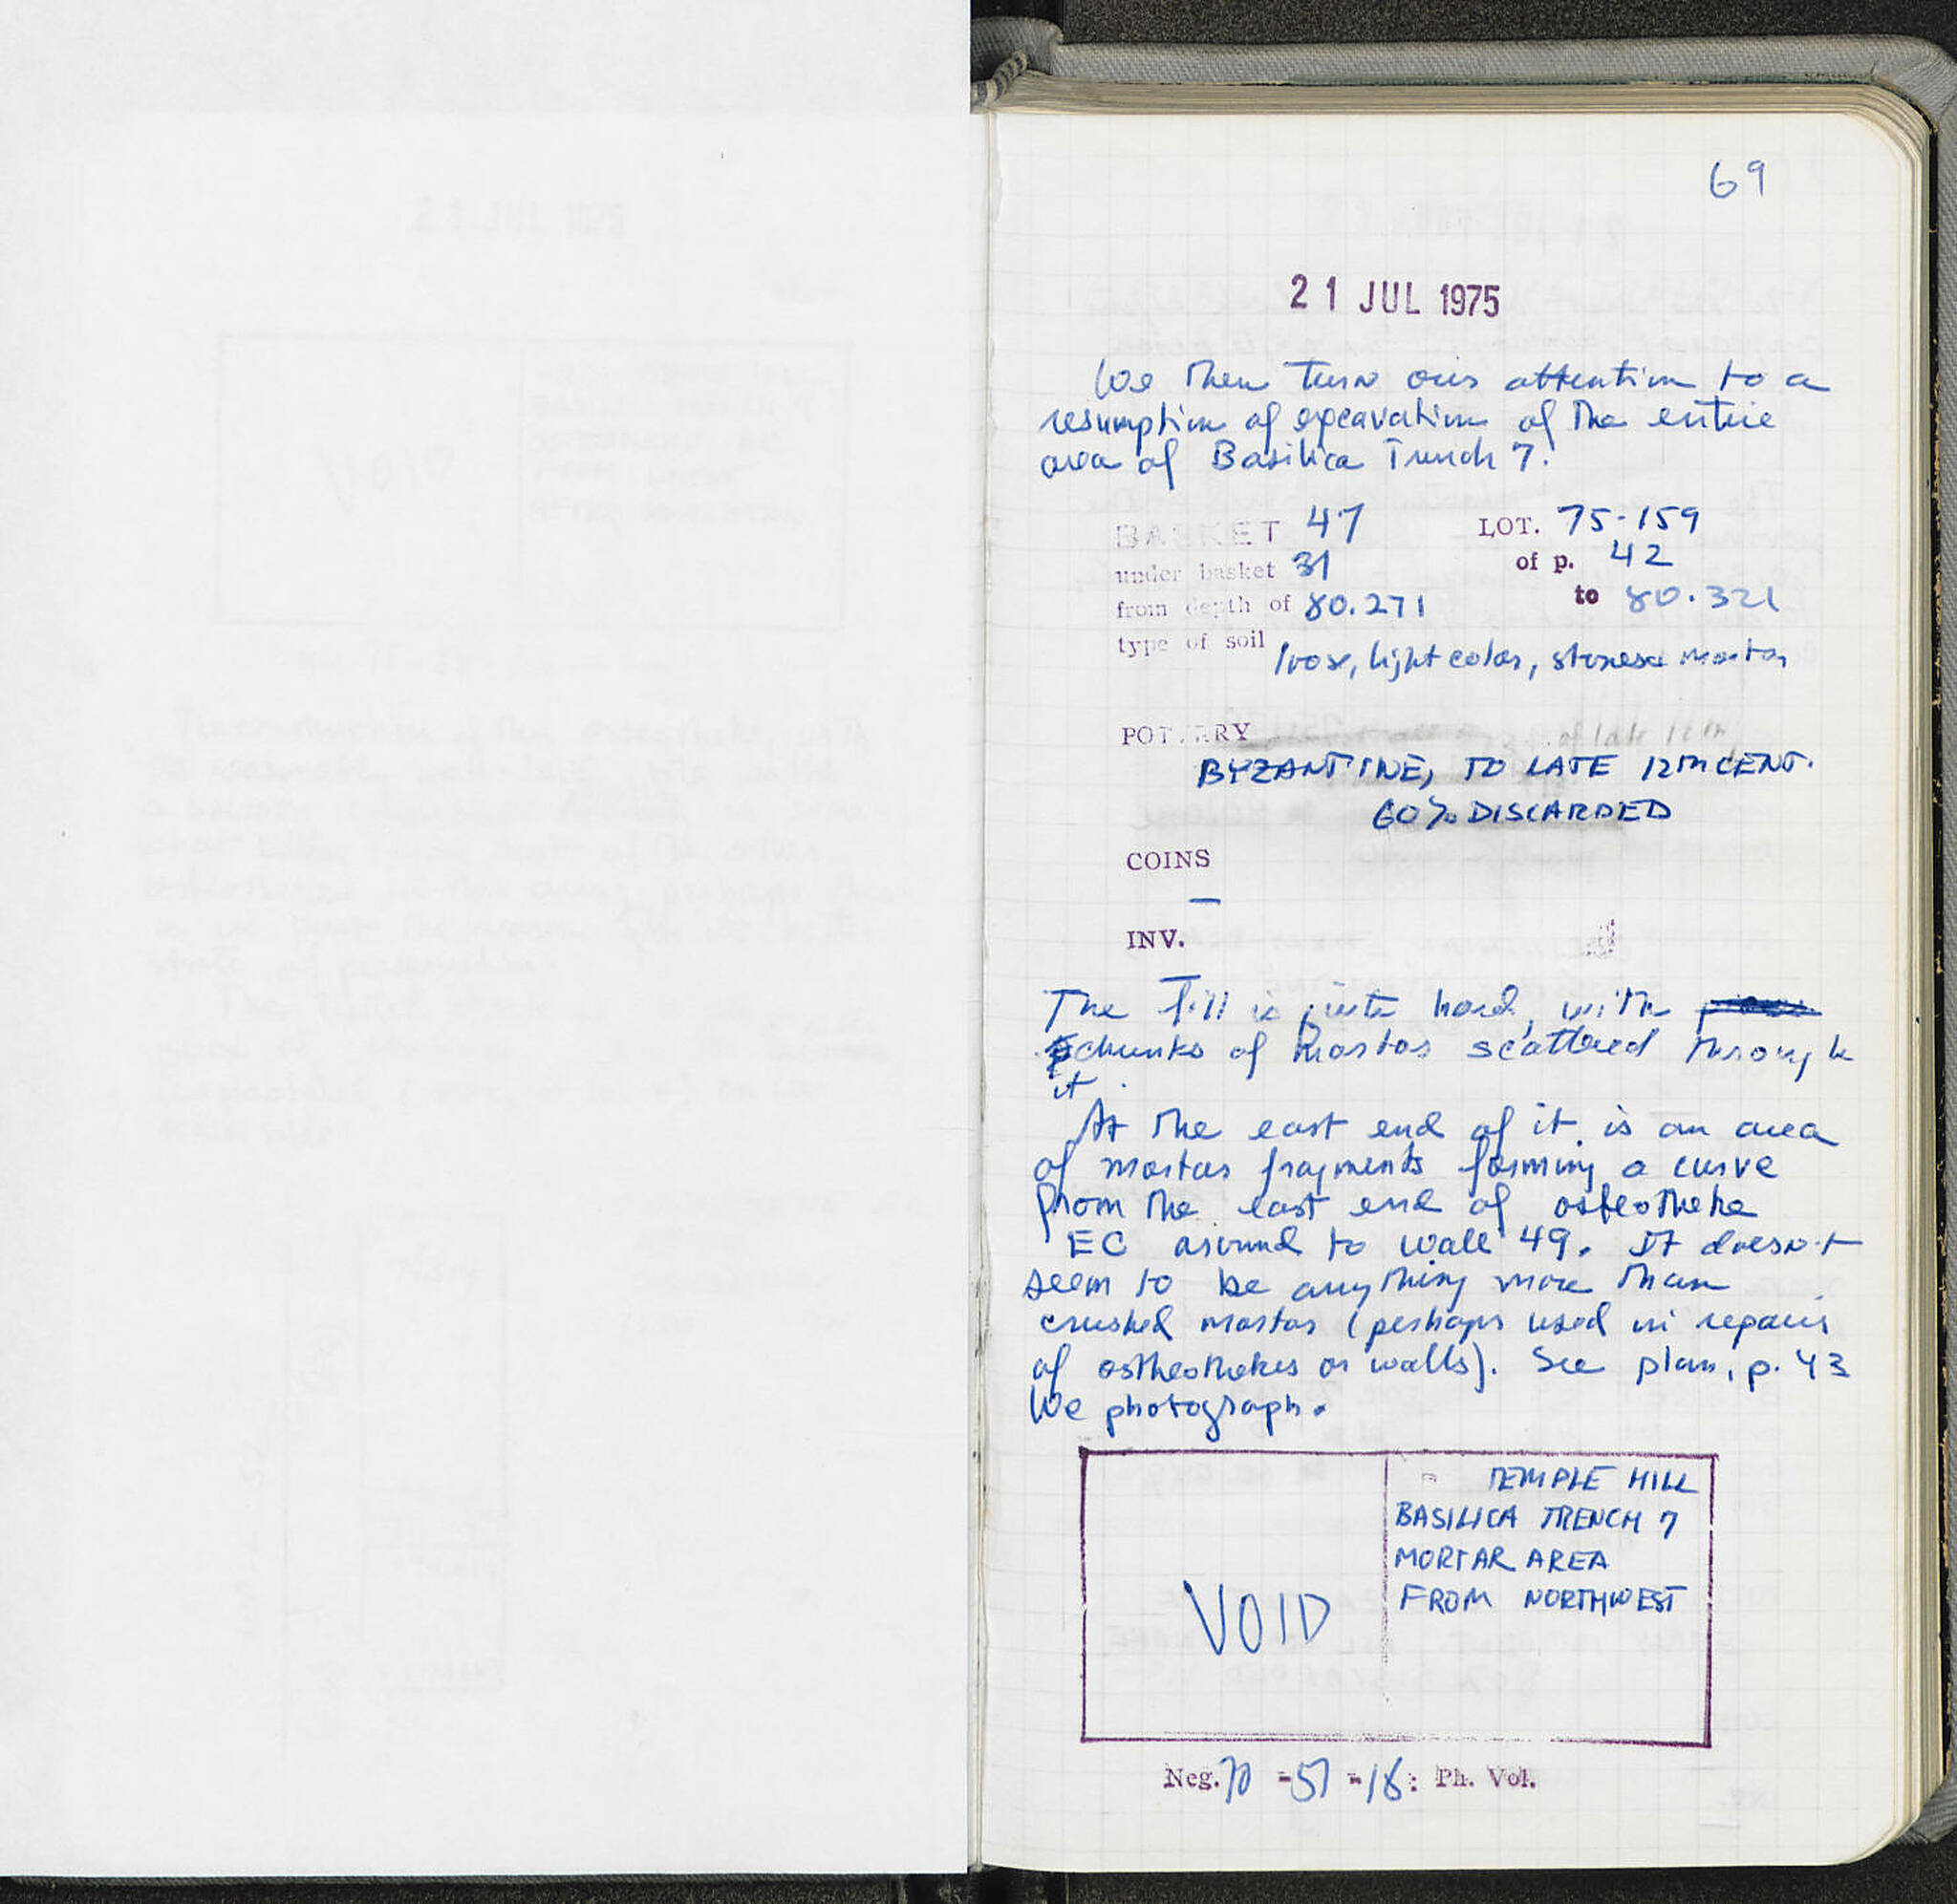 69
21 JUL 1975
We then turn our attention to a
resumption of excavation of the entire
area of Basilica Trench 7.
BASKET 47 LOT. 75-159
under basket 31 of p. 42
from depth of 80.271 to 80.321
type of soil loose, light color, stones & mortar
POTTERY
BYZANTINE, TO LATE 12TH CENT.
60% DISCARDED
COINS
—
INV.
—
The fill is quite hard, with
chunks of mortar scattered through
it.
At the east end of it is an area
of mortar fragments forming a curve
from the east end of osteotheke
EC around to wall 49. It doesn't
seem to be anything more than
crushed mortar (perhaps used in repairs
of ostheothekes or walls). See plan, p. 43
We photograph.
TEMPLE HILL
BASILICA TRENCH 7
MORTAR AREA
FROM NORTHWEST
VOID
Neg. -51-18: Ph. Vol.